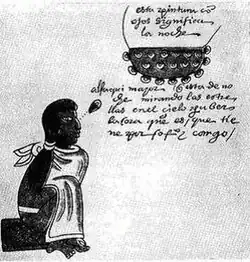 esta pintura cō
ojos significa
la noche
alfaqui mayor q̃ esta de no
che mirando las estre
llas en el cielo
la ora que es / que tie
ne por ofiçio y cargo /